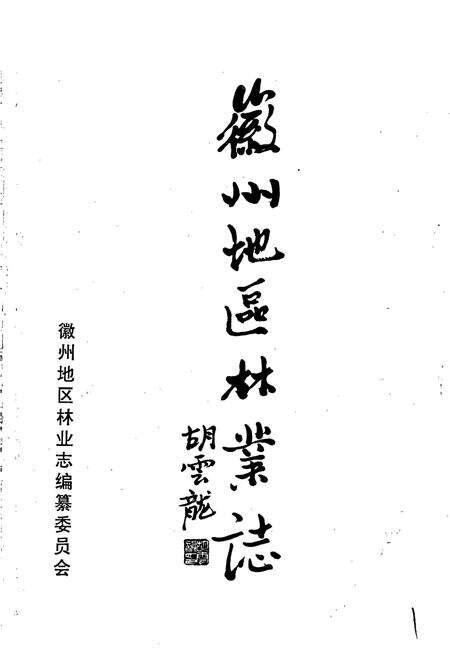 徽州地區林業誌
胡雲龍
徽州地区林业志编纂委员会